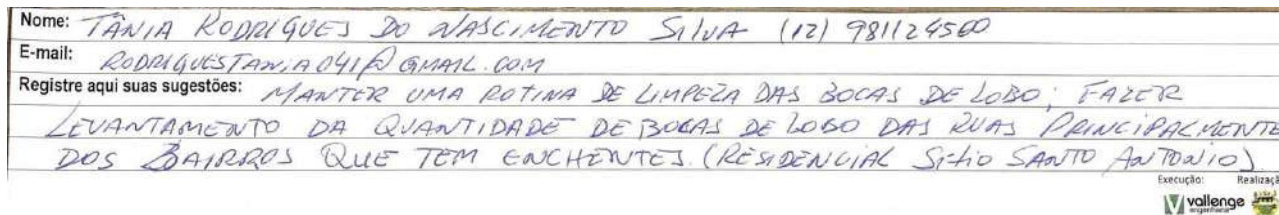 Nome: TÂNIA RODRIGUES DO NASCIMENTO SILVA (12) 981124560
E-mail: RODRIGUESTANIA041@GMAIL.COM
Registre aqui suas sugestões: MANTER UMA ROTINA DE LIMPEZA DAS BOCAS DE LOBO; FAZER
LEVANTAMENTO DA QUANTIDADE DE BOCAS DE LOBO DAS RUAS PRINCIPALMENTE
DOS BAIRROS QUE TEM ENCHENTES. (RESIDENCIAL SITIO SANTO ANTONIO)
Execução: Realizaçã
vallenge
engenharia